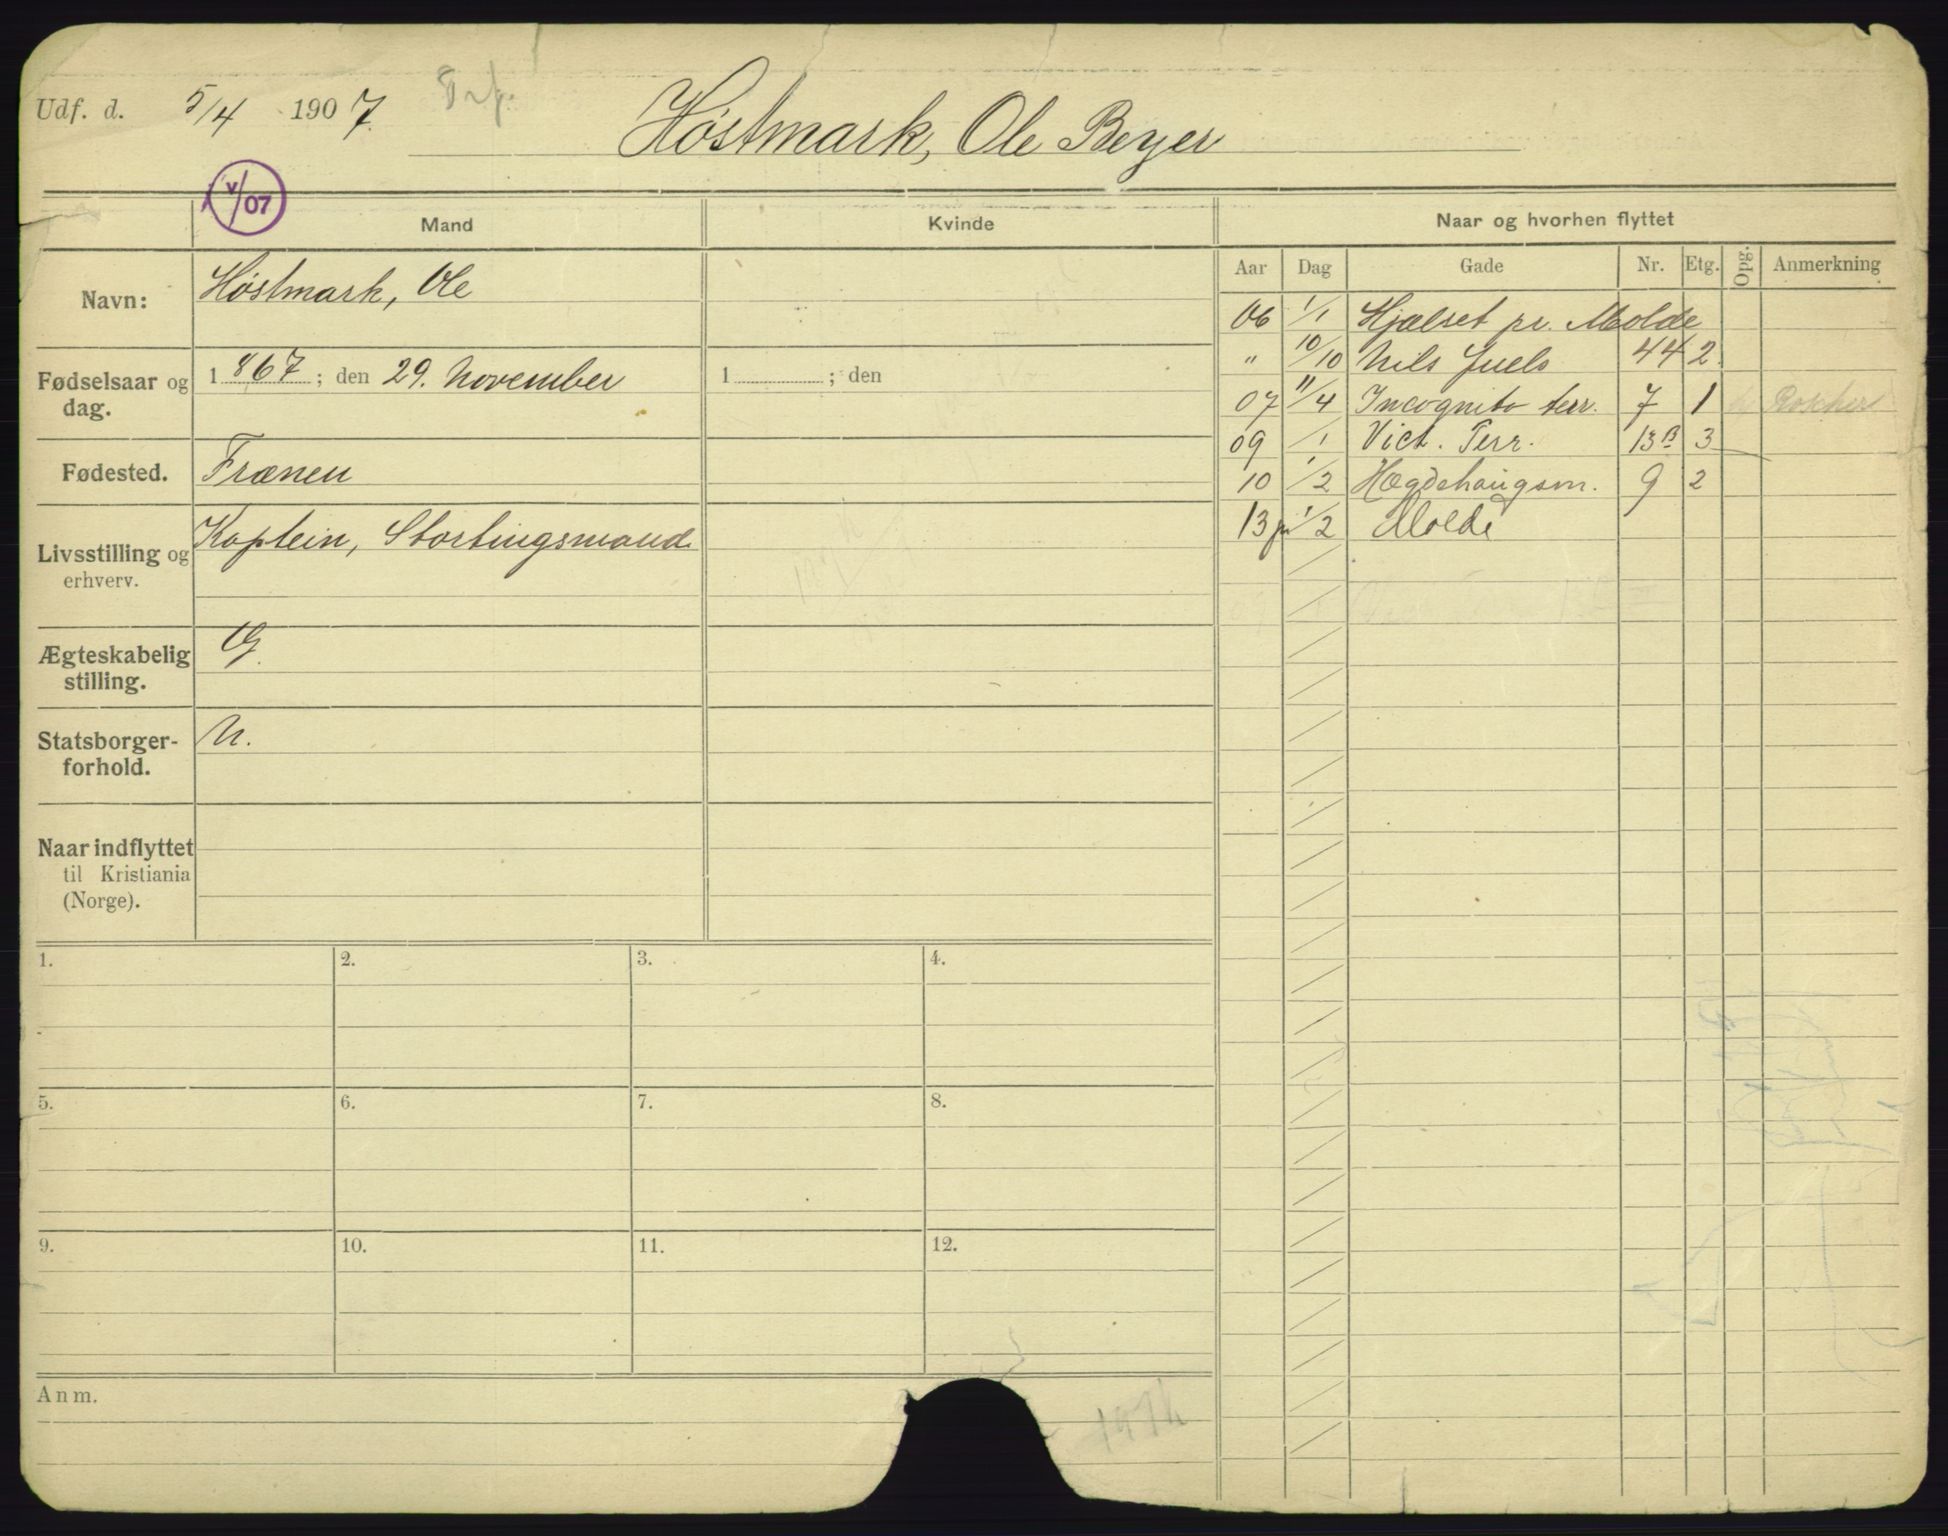 Udf. d. 5/4 1907.
Høstmark, Ole Beyer
V/07
Mand
Kvinde
Naar og hvorhen flyttet
Aar Dag Gade Nr. Etg. Opg. Anmerkning
Navn: Høstmark, Ole
Fødselsaar og dag. 1867; den 29. November
1 ; den
Fødested. Frænen
Livsstilling og erhverv. Kaptein, Stortingsmand
Ægteskabelig stilling. G.
Statsborgerforhold. N.
Naar indflyttet til Kristiania (Norge).
06 1/1 Hjælset pr. Molde
" 10/10 Nils Juels 44 2
07 11/4 Incognito terr. 7 1 Roscher
09 /1 Vict. Terr. 13B 3
10 1/2 Hægdehaugsv. 9 2
13 1/2 Molde
1. 2. 3. 4.
5. 6. 7. 8.
9. 10. 11. 12.
Anm.